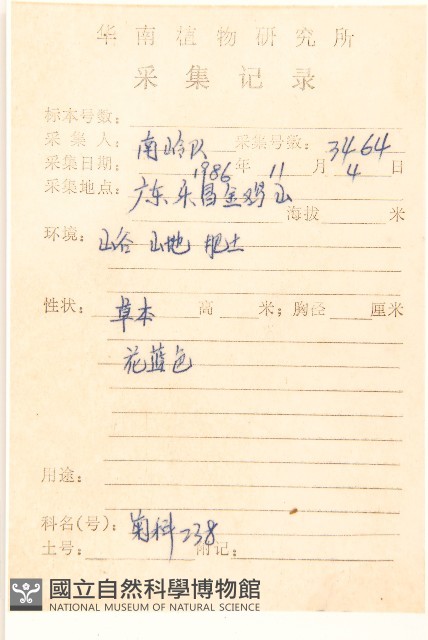 华南植物研究所
采集记录
标本号数：
采集人：南岭队 采集号数：3464
采集日期：1986年11月4日
采集地点：广东乐昌金鸡山
海拔 米
环境：山谷 山地 肥土
性状：草本 高 米；胸径 厘米
花蓝色
用途：
科名(号)：菊科 238
土号： 附记：
國立自然科學博物館
NATIONAL MUSEUM OF NATURAL SCIENCE